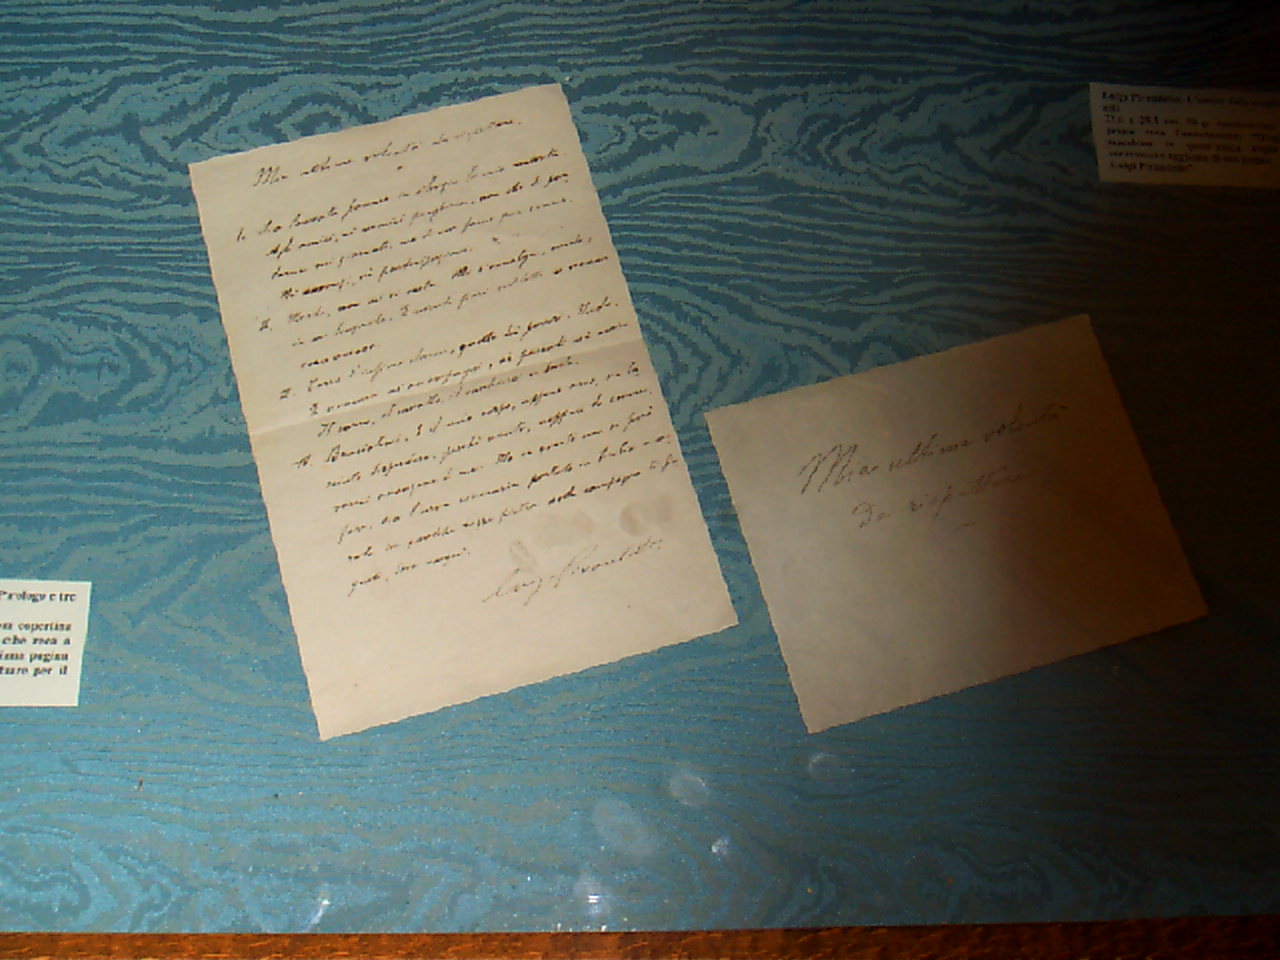 Mie ultime volontà da rispettare.
I. Sia lasciata passare in silenzio la mia morte.
Agli amici, ai nemici preghiera, non che di par-
larne sui giornali, ma di non farne pur cenno.
Né annunzi, né partecipazioni.
II. Morto, non mi si vesta. Mi s'avvolga, nudo,
in un lenzuolo. E niente fiori sul letto e nessun
cero acceso.
III. Carro d'infima classe, quello dei poveri. Nudo.
E nessuno m'accompagni, né parenti né amici.
Il carro, il cavallo, il cocchiere e basta.
IV. Bruciatemi. E il mio corpo, appena arso, sia la-
sciato disperdere; perché niente, neppure la cenere,
vorrei avanzasse di me. Ma se questo non si può
fare, sia l'urna cineraria portata in Sicilia e mu-
rata in qualche rozza pietra nella campagna di Gir-
genti, dove nacqui.
Luigi Pirandello
Mie ultime volontà
da rispettare
Prologo e tre
copertina
che reca a
pagina
per il
Luigi Pirandello.
Luigi Pirandello"